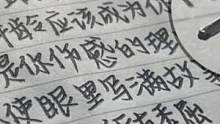 龄应该成为你
是你伤感的理
使眼里写满故